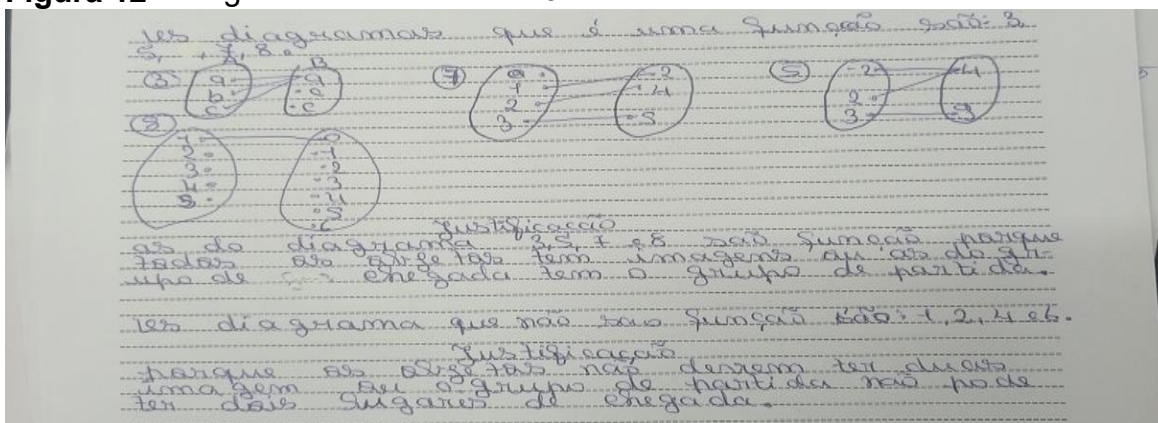 Figura 12
res diagramas que é uma função são: 3,
5, 7, 8.
A B
(3) a b c a e c
(7) 0 1 2 3 2 4 5
(5) -2 2 3 4 9
(8)
1 0
2 1
3 2
4 3
5 4
5
6
Justificação
as do diagrama 3, 5, 7 e 8 são função porque
todas os objetos tem imagens ou as do gr-
upo de chegada tem o grupo de partida.
res diagrama que não sao função são: 1, 2, 4 e 6.
Justificação
porque os objetos não devem ter duas
imagem ou o grupo de partida não pode
ter dois lugares de chegada.